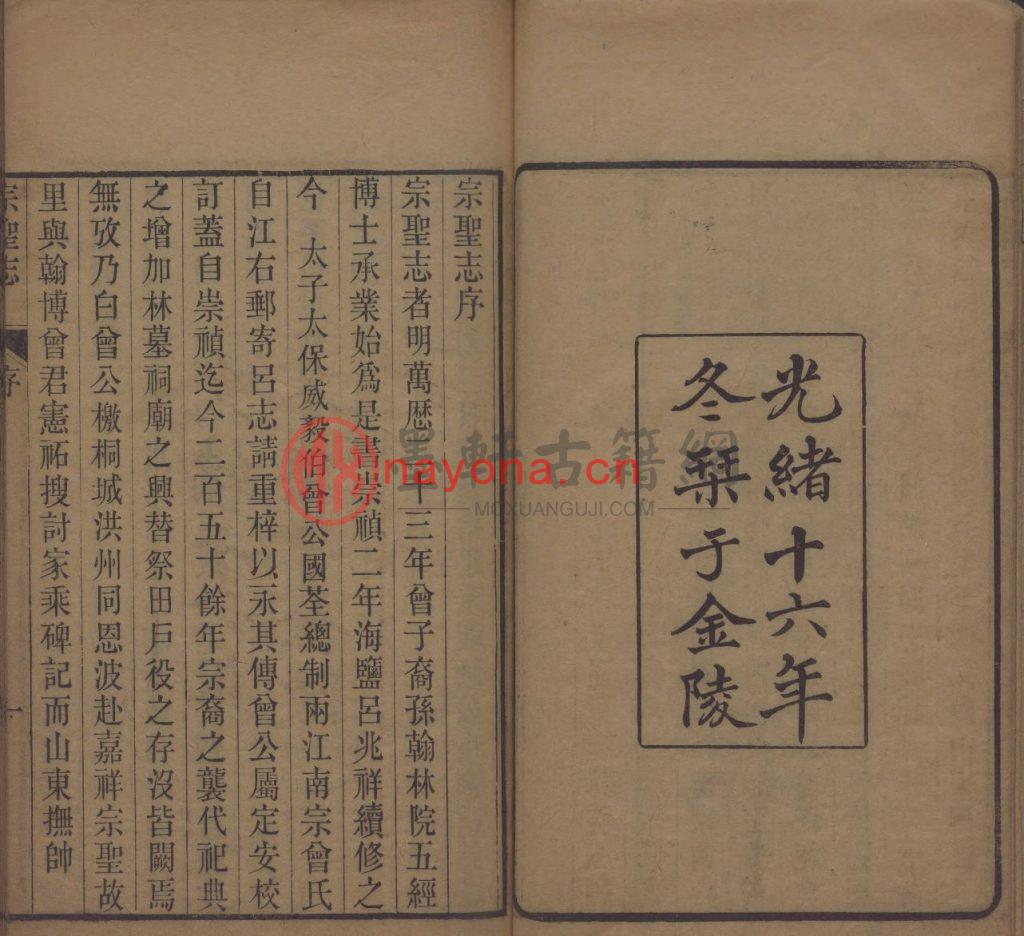 光緒十六年
冬栞于金陵
宗聖志序
宗聖志者明萬歷二十三年曾子裔孫翰林院五經
博士承業始爲是書崇禎二年海鹽呂兆祥續修之
今 太子太保威毅伯曾公國荃總制兩江南宗曾氏
自江右郵寄呂志請重梓以永其傳曾公屬定安校
訂蓋自崇禎迄今二百五十餘年宗裔之襲代祀典
之增加林墓祠廟之興替祭田戶役之存沒皆闕焉
無攷乃白曾公檄桐城洪州同恩波赴嘉祥宗聖故
里與翰博曾君憲祏搜討家乘碑記而山東撫帥
宗聖志 序 一
墨軒古籍網
nayona.cn
MOXUANGUJI.COM